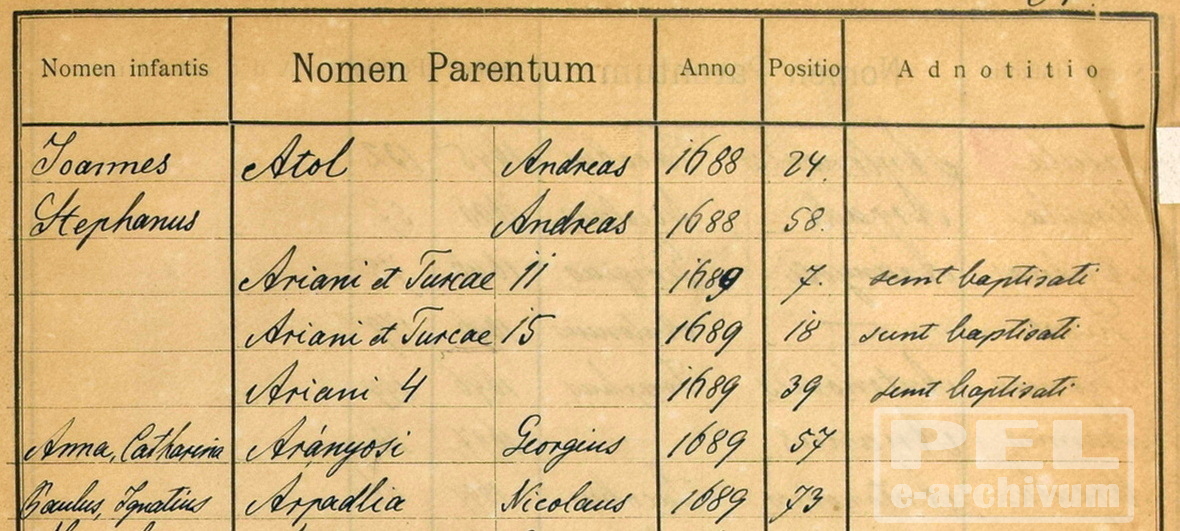 Nomen infantis Nomen Parentum Anno Positio Adnotitio
Joannes Atol Andreas 1688 24.
Stephanus Andreas 1688 58.
Ariani et Turcae 11 1689 7. sunt baptisati
Ariani et Turcae 15 1689 18 sunt baptisati
Ariani 4 1689 39 sunt baptisati
Anna, Catharina Arányosi Georgius 1689 57
Paulus, Ignatius Arpadlia Nicolaus 1689 73
PEL
e-archivum